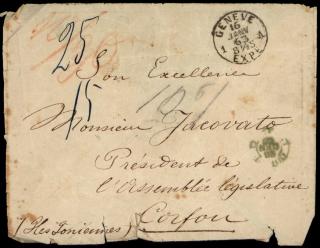 GENÈVE
16
JANV
63
8 M S
1
1
EXPÉ
25
15
Son Excellence
Monsieur Jacovato
Président de
l'Assemblée législative
Corfou
(Iles Ioniennes)